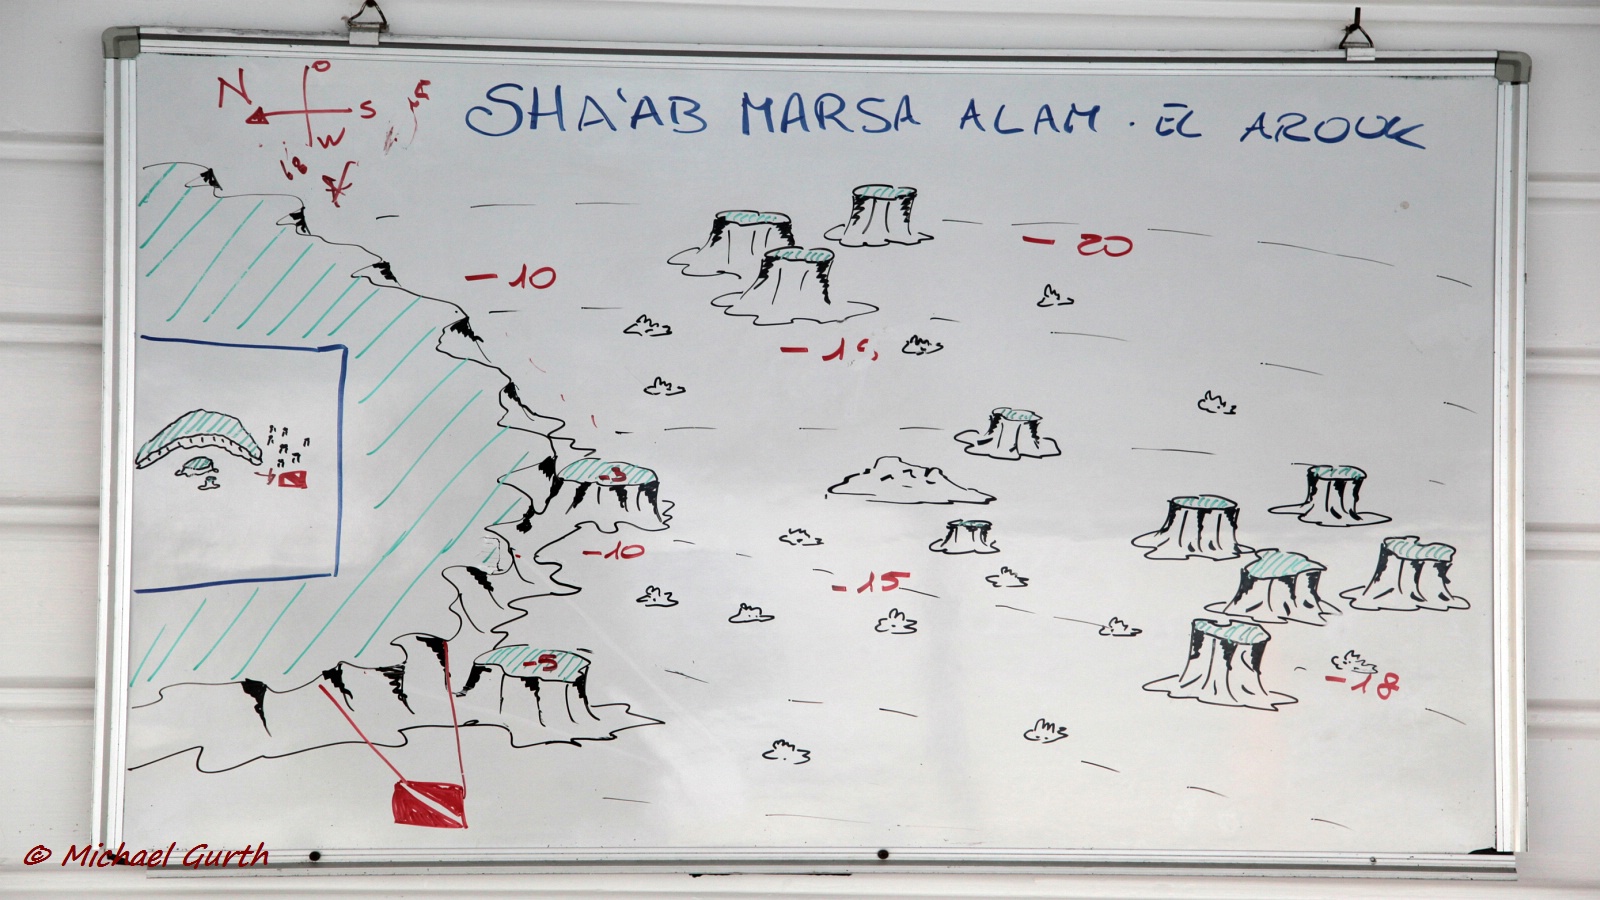 N
O
S
W
SHA'AB MARSA ALAM. EL AROUK
- 20
- 10
-3
-10
-15
-5
-18
© Michael Gurth